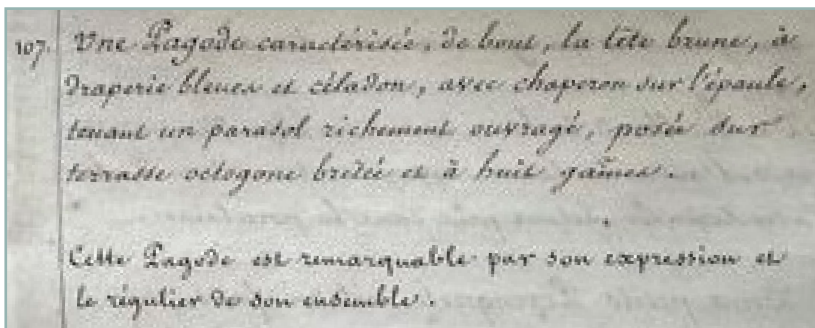 107. Une Pagode caractérisée, de bout, la tête brune, à
draperie bleues et céladon, avec chaperon sur l'épaule,
tenant un parasol richement ouvragé, posée sur
terrasse octogone brisée et à huit gaînes.
Cette Pagode est remarquable par son expression et
le régulier de son ensemble.